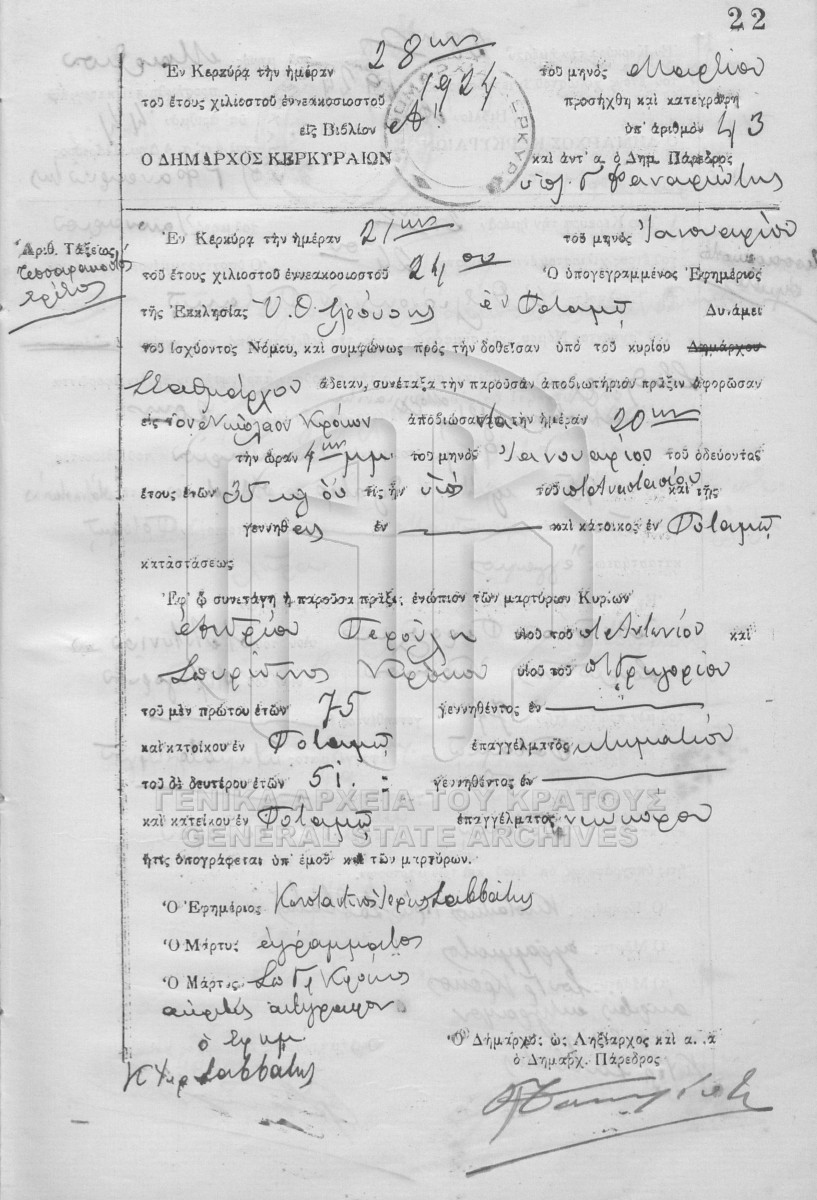 22
Ἐν Κερκύρᾳ τὴν ἡμέραν 28ην τοῦ μηνὸς Μαρτίου
τοῦ ἔτους χιλιοστοῦ ἐννεακοσιοστοῦ 1924 προσήχθη καὶ κατεγράφη
εἰς Βιβλίον Α' ὑπ' ἀριθμὸν 43
Ο ΔΗΜΑΡΧΟΣ ΚΕΡΚΥΡΑΙΩΝ καὶ ἀντ' α. ὁ Δημ. Πάρεδρος
Ἀριθ. Τάξεως
Τεσσαρακοστὸς
τρίτος
Ἐν Κερκύρᾳ τὴν ἡμέραν 21ην τοῦ μηνὸς Ἰανουαρίου
τοῦ ἔτους χιλιοστοῦ ἐννεακοσιοστοῦ 24ου Ὁ ὑπογεγραμμένος Ἐφημέριος
τῆς Ἐκκλησίας Υ. Θ. ἐν Ποταμῷ Δυνάμει
τοῦ ἰσχύοντος Νόμου, καὶ συμφώνως πρὸς τὴν δοθεῖσαν ὑπὸ τοῦ κυρίου Δημάρχου
Σταθμάρχου ἄδειαν, συνέταξα τὴν παρούσαν ἀποβιωτήριον πρᾶξιν ἀφορῶσαν
εἰς τὸν Νικόλαον Κρόκον ἀποβιώσαντα τὴν ἡμέραν 20ην
τὴν ὥραν 4ην μμ τοῦ μηνὸς Ἰανουαρίου τοῦ ὁδεύοντος
ἔτους ἐτῶν 35 τὶς ἦν υἱὸς τοῦ Ἀναστασίου καὶ τῆς
γεννηθεὶς ἐν καὶ κάτοικος ἐν Ποταμῷ
καταστάσεως
Ἐφ' ᾧ συνετάγη ἡ παροῦσα πρᾶξις ἐνώπιον τῶν μαρτύρων Κυρίων
Σπυρίδωνος Κρόκου υἱοῦ τοῦ Γρηγορίου
υἱοῦ τοῦ Ἀντωνίου καὶ
τοῦ μὲν πρώτου ἐτῶν 75 γεννηθέντος ἐν
καὶ κατοίκου ἐν Ποταμῷ ἐπαγγέλματος κτηματίου
τοῦ δὲ δευτέρου ἐτῶν 51. γεννηθέντος ἐν
ΓΕΝΙΚΑ ΑΡΧΕΙΑ ΤΟΥ ΚΡΑΤΟΥΣ
καὶ κατοίκου ἐν Ποταμῷ ἐπαγγέλματος νεωκόρου
GENERAL STATE ARCHIVES
ἥτις ὑπογράφεται ὑπ' ἐμοῦ καὶ τῶν μαρτύρων.
Ὁ Ἐφημέριος Κωνσταντῖνος Ἱερεὺς Σαββάνης
Ὁ Μάρτυς ἀγράμματος
Ὁ Μάρτυς Σπ Γρ Κρόκος
ἀκριβὲς ἀντίγραφον
ὁ Ἐφημ
Κ Ἱερ Σαββάνης
Ὁ Δήμαρχος ὡς Ληξίαρχος καὶ α. ἀ
ὁ Δημαρχ. Πάρεδρος